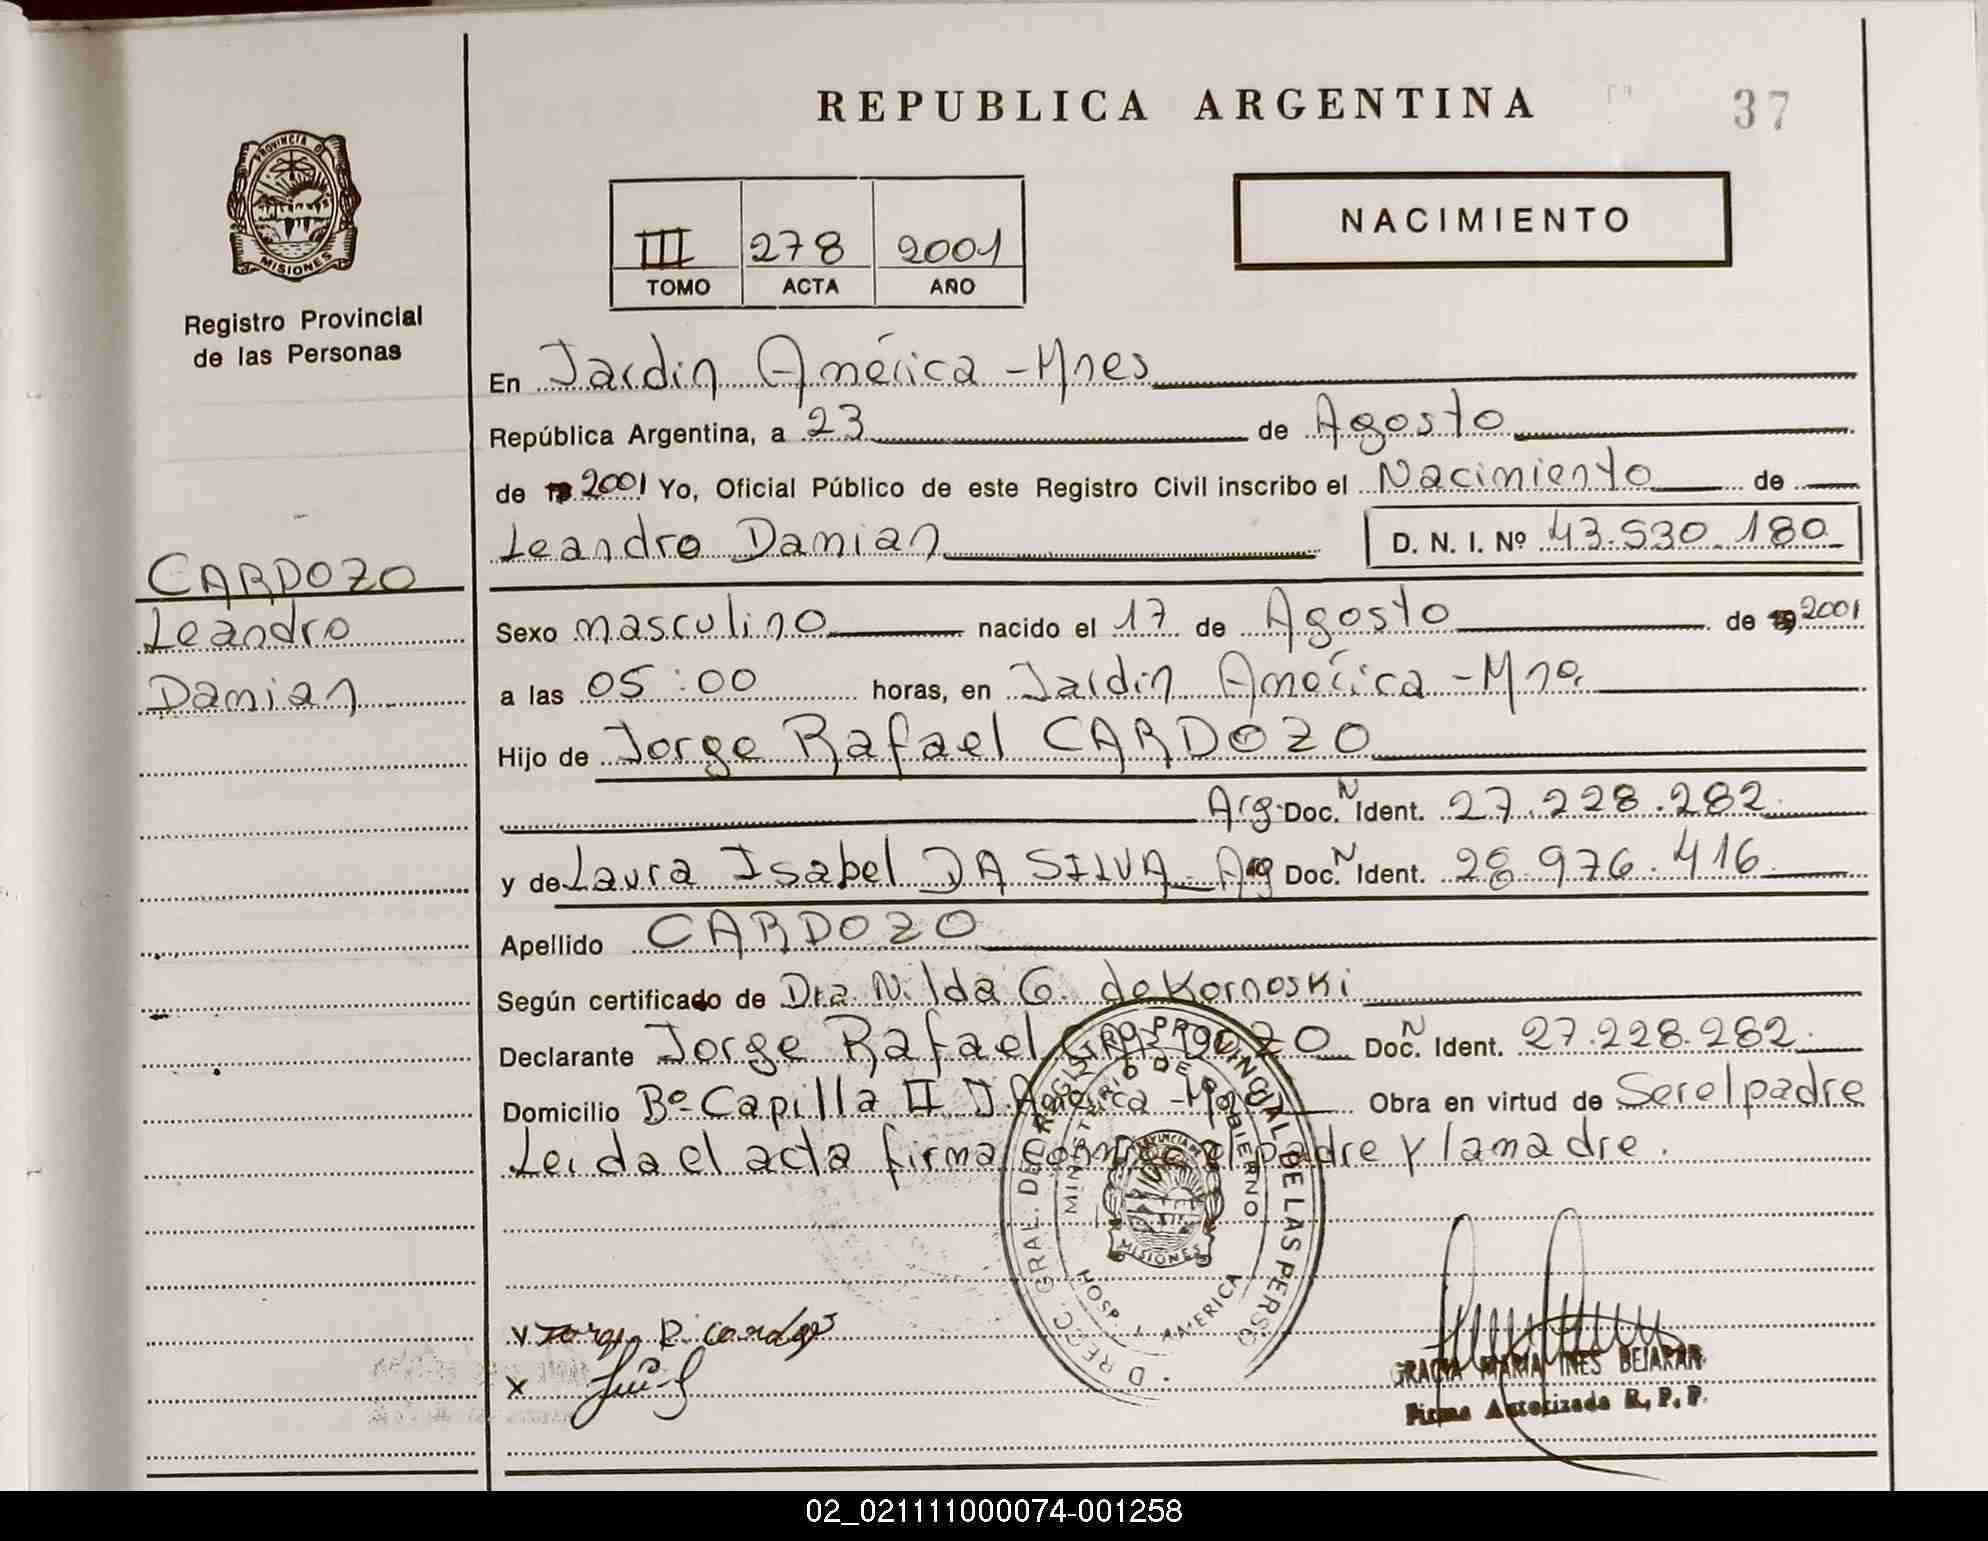 REPUBLICA ARGENTINA
37
PROVINCIA D
MISIONES
Registro Provincial
de las Personas
NACIMIENTO
III 278 2001
TOMO ACTA AÑO
En Jardin América - Mnes
República Argentina, a 23 de Agosto
de 2001 Yo, Oficial Público de este Registro Civil inscribo el Nacimiento de
Leandro Damian D. N. I. Nº 43.530.180
CARDOZO
Leandro
Damian
Sexo masculino nacido el 17 de Agosto de 2001
a las 05:00 horas, en Jardin América - Mnes
Hijo de Jorge Rafael CARDOZO
Arg. Doc. N Ident. 27.228.282.
y de Laura Isabel DA SILVA - Arg Doc. N Ident. 28.976.416.
Apellido CARDOZO
Según certificado de Dra. Nilda G. de Kornoski
Declarante Jorge Rafael CARDOZO Doc. N Ident. 27.228.282.
Domicilio Bº Capilla II J. América - Mnes Obra en virtud de Ser el padre
Leida el acta firma conmigo el padre y la madre.
DIRECC. GRAL. DEL REGISTRO PROVINCIAL DE LAS PERSO
MINISTERIO DE GOBIERNO
MISIONES
HOSP J AMERICA
x
GRACIA MARIA INES BEJARAN
Firma Autorizada R. P. P.
02_021111000074-001258